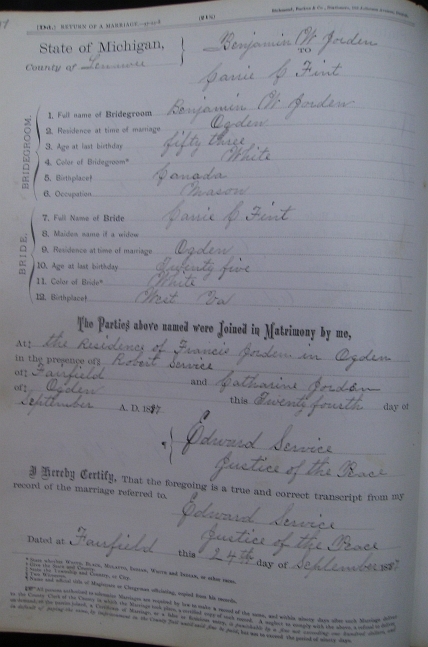 [Dak.] RETURN OF A MARRIAGE.
(218)
State of Michigan,
County of Lenawee
Benjamin W. Jorden
TO
Carrie C Fint
BRIDEGROOM.
1. Full name of Bridegroom Benjamin W. Jorden
2. Residence at time of marriage Ogden
3. Age at last birthday fifty three
4. Color of Bridegroom* White
5. Birthplace† Canada
6. Occupation Mason
BRIDE.
7. Full Name of Bride Carrie C Fint
8. Maiden name if a widow
9. Residence at time of marriage Ogden
10. Age at last birthday Twenty five
11. Color of Bride* White
12. Birthplace† West Va
The Parties above named were Joined in Matrimony by me,
At‡ the Residence of Francis Jorden in Ogden
in the presence of§ Robert Service
of‡ Fairfield and Catharine Jorden
of‡ Ogden this Twenty fourth day of
September A. D. 1887
Edward Service
Justice of the Peace
I Hereby Certify, That the foregoing is a true and correct transcript from my
record of the marriage referred to.
Edward Service
Justice of the Peace
Dated at Fairfield this 24th day of September 1887